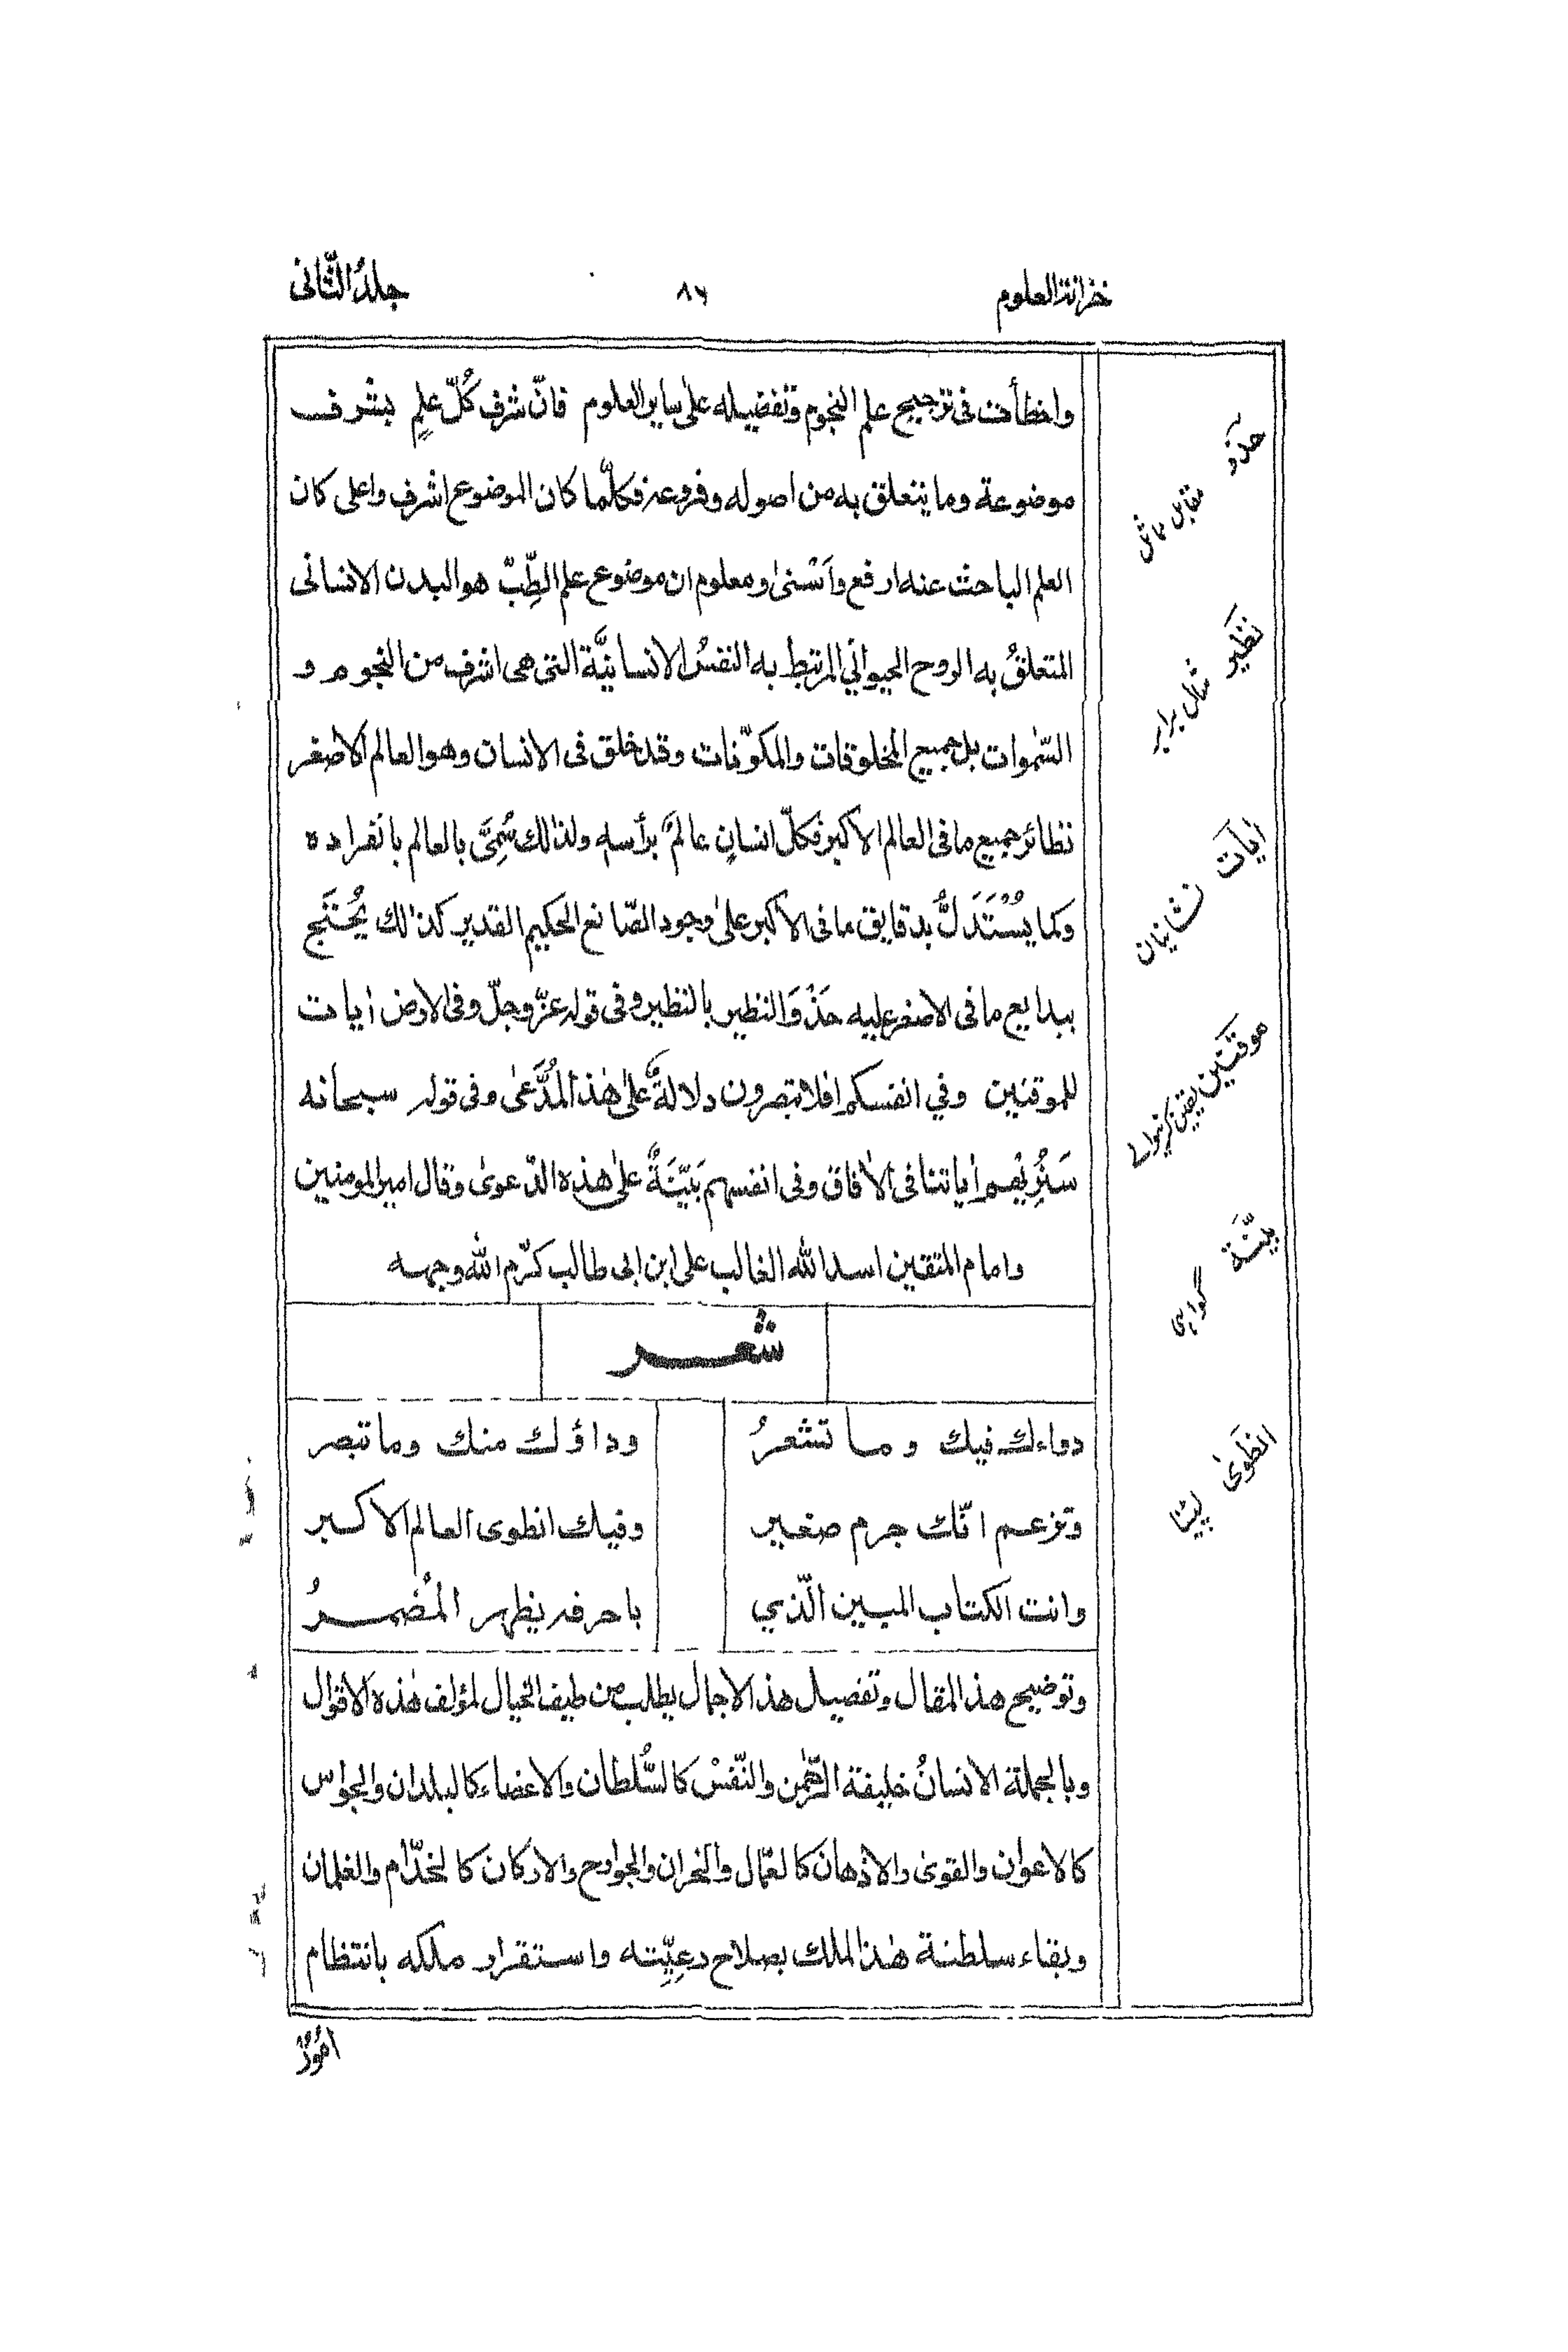 خزانة العلوم
٨٦
جلدُ الثّانى
واخطأت فى ترجيح علم النجوم وتفضيله على ساير العلوم فانّ شرف كُلّ علمٍ بشرف
موضوعة وما يتعلق به من اصوله وفروعه فكلّما كان الموضوع اشرف واعلى كان
العلم الباحث عنه ارفع وأسْنىٰ ومعلوم ان موضوع علم الطِّبّ هو البدن الانسانى
المتعلقُ به الروح الحيوانى المرتبط به النفسُ الانسانيَّة التى هى اشرف من النجوم و
السّمٰوات بل جميع المخلوقات والمكوّنات وقد خلق فى الانسان وهو العالم الاصغر
نظائر جميع ما فى العالم الاكبر فكلّ انسانٍ عالمٌ برأسهٖ ولذٰلك سُمِّىَ بالعالم بانفراده
وكما يُسْتَدَلُّ بدقايق ما فى الاكبر علىٰ وجود الصّانع الحكيم القدير كذٰلك يُحْتَج
ببدايع ما فى الاصغر عليه حَذْوَ النظير بالنظير وفى قوله عزّ وجلّ وفى الارض اٰيات
للموقنين وفي انفسكم افلا تبصرون دلالةٌ علىٰ هٰذ المُدَّعىٰ وفى قوله سبحانه
سَنُرِيْهم اٰياتنا فى الاٰفاق وفى انفسهم بَيّنَةٌ علىٰ هٰذه الدّعوىٰ وقال امير المومنين
وامام المتقين اسد الله الغالب على ابن ابى طالب كرّم الله وجهه
شعر
دواءك فيك وما تشعرُ وداؤك منك وما تبصر
وتزعم انّك جرم صغير وفيك انطوى العالم الاكبر
وانت الكتاب المبين الّذي باحرفه يظهر المُضمرُ
وتوضيح هذ المقال وتفصيل هذ الاجمال يطلب من طيف الخيال لمؤلف هٰذه الاقوال
وبالجملة الانسانُ خليفة الرّحمٰن والنّفسْ كالسُّلطان والاعضاء كالبلدان والحواس
كالاعوان والقوىٰ والاذهان كالعمّال والخزان والجوارح والاركان كالخدّام والغلمان
وبقاء سلطنة هٰذ الملك بصلاح رعِيّته واستقرار ملكه بانتظام
امُورٌ
حَذو
مقابل مماثل
نَظير
مثال برابر
اٰيات
نشانيان
موقنين
يقين كرنيوالے
بيّنَة
گواہى
انطَوىٰ
لپٹا